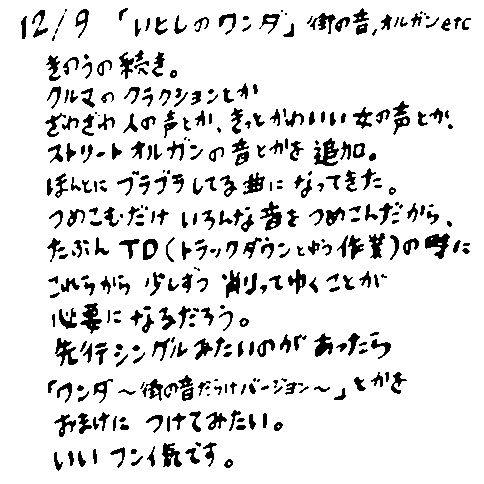 12/9 「いとしのワンダ」街の音,オルガンetc
きのうの続き。
クルマのクラクションとか
ざわざわ人の声とか、きっとかわいい女の声とか、
ストリートオルガンの音とかを追加。
ほんとにブラブラしてる曲になってきた。
つめこむだけいろんな音をつめこんだから、
たぶんTD(トラックダウンとゆう作業)の時に
これらから少しずつ削ってゆくことが
必要になるだろう。
先行シングルみたいのがあったら
「ワンダ〜街の音だらけバージョン〜」とかを
おまけにつけてみたい。
いいフンイ気です。